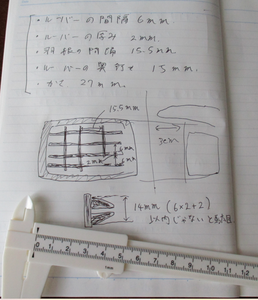 ・ルーバーの間隔 6mm
・ルーバーの厚み 2mm
・羽根の間隔 15.5mm
・ルーバーの奥行き 15mm
・かさ 27mm
15.5mm
2mm
14mm (6×2+2)
以内じゃないと
0 1 2 3 4 5 6 7 8 9 10 11 12